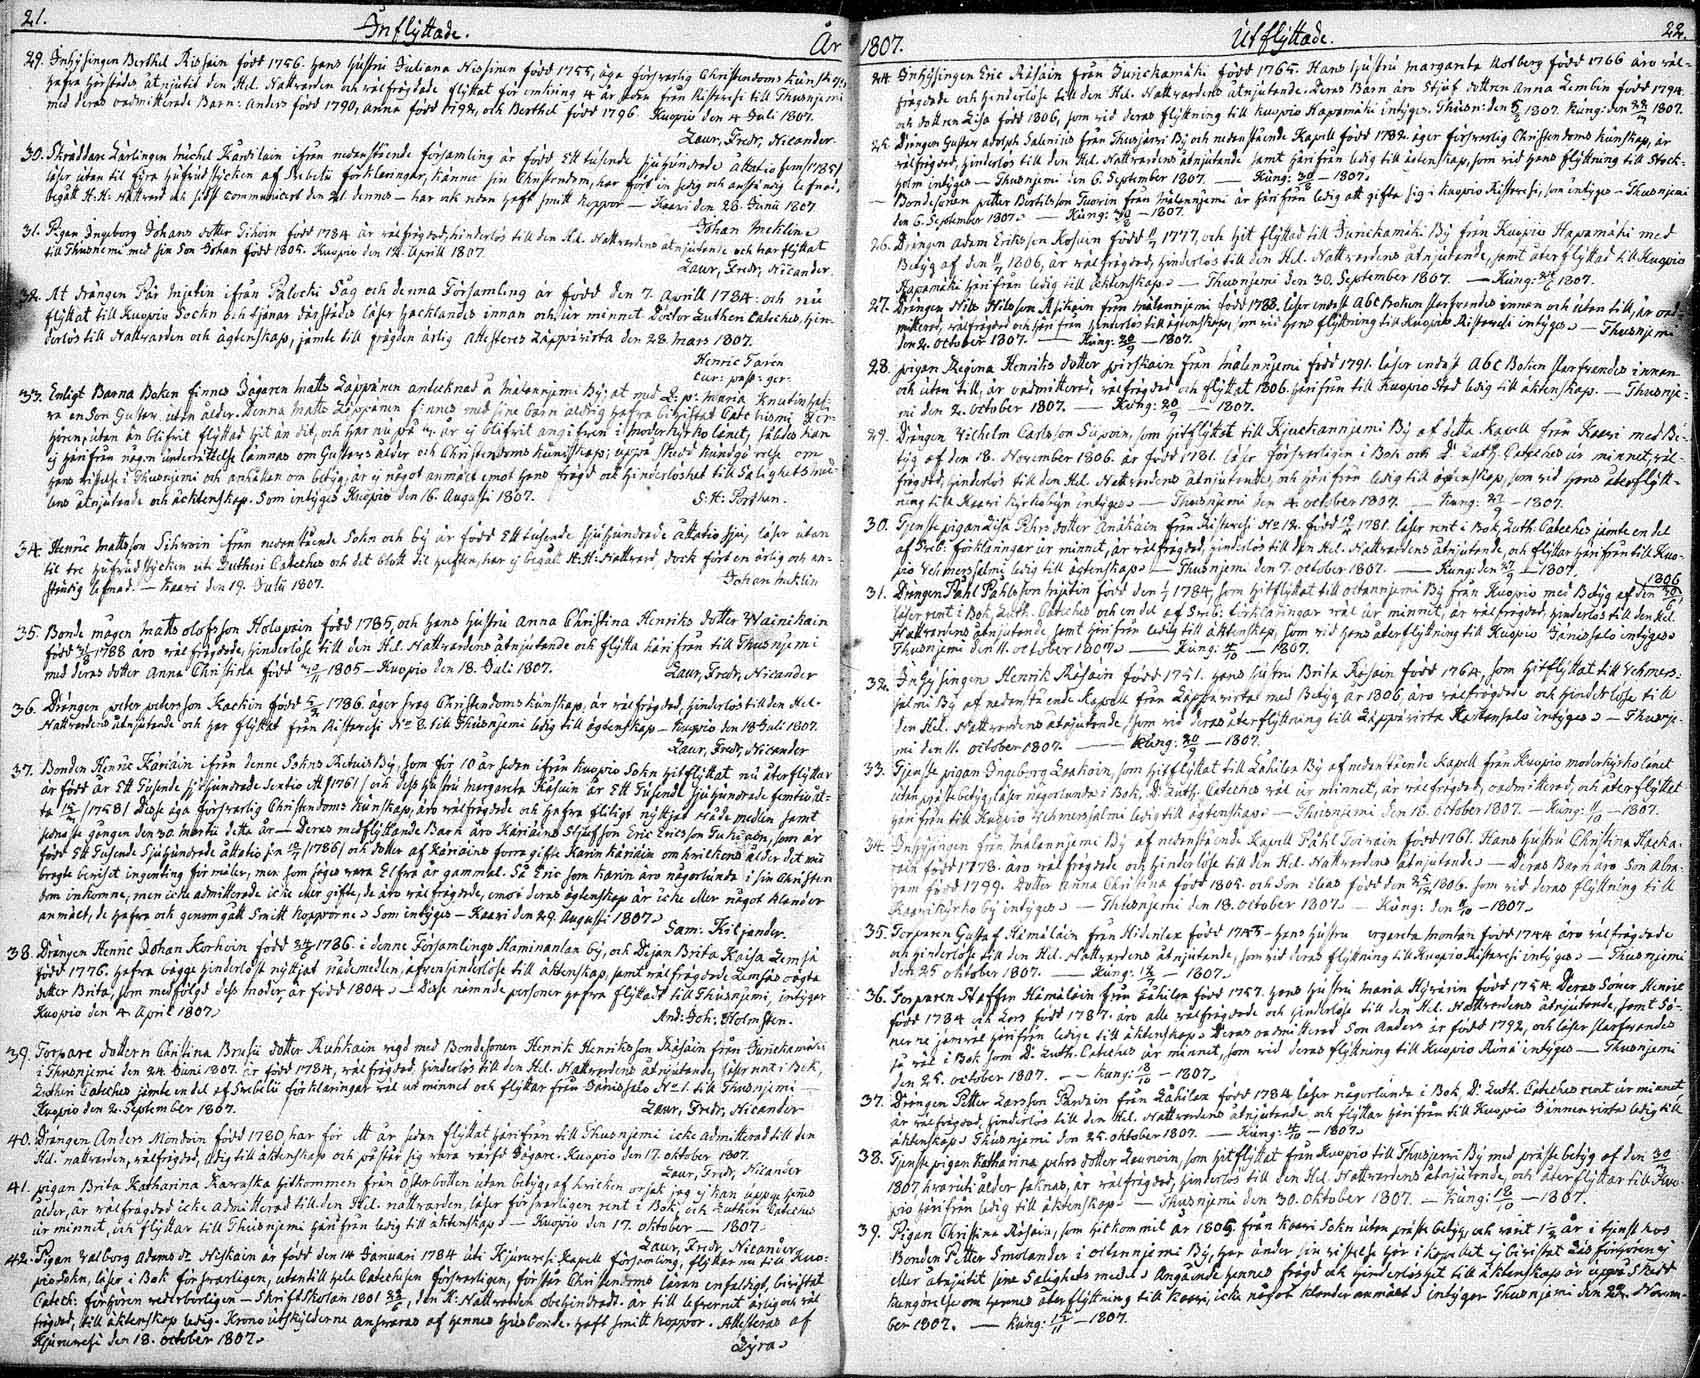 21.
Inflÿttade.
År
29. Inhÿsingen Berthel Rissain född 1756. hans hustru Juliana Nissinen född 1755, äga försvarlig Christendoms kunskap,
hafva härstädes åtnjutit den Hel. Nattvarden och välfrägdade flÿttat för omkring 4 år sedan från Ristavesi till Thusnjemi
med deras oadmitterade Barn: Anders född 1790, Anna född 1792, och Berthel född 1796 Kuopio den 4 Juli 1807.
Laur, Fredr, Nicander
30. Skräddare Lärlingen Michel Kardilain ifrån nedanstående församling är född Ett tusende sjuhundrade åttatio fem (1785)
läser utan til fÿra hufvudstÿcken af Svebelii förklaringar, känner sin Christendom, har fört en sedig och anständig lefnad,
begått H: H: Nattvard och sidst communicert den 21 dennes — har ock redan haft smitt koppor — Kaavi den 28. Junii 1807
Johan Mekline
31. Pigan Ingeborg Johans dotter Sihvoin född 1784 är välfrägdad, hinderlös till den Hel. Nattvardens åtnjutande och har flÿttat
till Thusnjemi med sin Son Johan född 1805. Kuopio den 12. Aprill 1807
Laur, Fredr, Nicander.
32. At drängen Pär Mjetin ifrån Palocki Såg och denna Församling är född den 7. aprill 1784. och nu
flÿttat till Kuopio Sockn och tjänar därstädes läser hacklandes innan och ur minnet Doctor Luthers Cateches, hin-
derlös till Nattvarden och ägtenskap, jämte till frägden ärlig attesteres Läppävirta den 28. Mars 1807.
Henric Taren
Cur: past: ger:
33. Enligt Barna Boken finnes Sågaren Matts Läppänen antecknad å Målannjemi Bÿ; at med L: p: Maria Knutin haf-
va en Son Gustav utan ålder. Denna Matts Läppänen finnes med sine barn aldrig hafva bivistat Catechismi För-
hören, utan än blifvit flÿttad hit än dit, och har nu på år ej blifvit angifven i moderkÿrko länet, således kan
ej härifrån någon underrättelse lämnas om Gustavs ålder och Christendoms kunskap; uppå skedd kundgörelse om
hans vistelse i Thusnjemi och anhållan om betÿg, är ej något anmält emot hans frägd och hinderlöshet till Salighets med-
lens åtnjutande och ächtenskap. Som intÿges Kuopio den 16. Augusti 1807.
G. H: Porthan.
34. Henric Mattsson Sihvoin ifrån nedanstående Sokn och bÿ är född Ett tusende sjuhundrade åttatio sju, läser utan
til tre hufvudstÿcken ut Lutheri Cateches och det blott til hälften, har ej begått H: H: Nattvard, dock fört en ärlig och an-
ständig lefnad. — Kaavi den 19. Julii 1807.
Johan Meklin
35. Bonde mågen Matts Olofsson Holopain född 1785, och hans hustru Anna Christina Henriks dotter Wainikain
född 1788 äro välfrägdade, hinderlöse till den Hel. Nattvardens åtnjutande och flÿtta härifrån till Thusnjemi
med deras dotter Anna Christina född 1805 — Kuopio den 18. Juli 1807.
Laur, Fredr, Nicander
36. Drängen petter petersson Kackin född 1786. äger svag Christendoms kunskap, är välfrägdad, hinderlös till den Hel.
Nattvardens åtnjutande och har flÿttat från Ristavesi No 8. till Thusnjemi ledig till ägtenskap — Kuopio den 18 Juli 1807.
Laur, Fredr, Nicander
37. Bonden Henric Käriäin ifrån denne Sokns Retuis Bÿ, som för 10 år sedan ifrån Kuopio Sokn hitflÿttat nu återflÿttar
är född år Ett Tusende sjuhundrade sextio ett (1761) och dess hustru Margareta Räsäin år Ett Tusende sjuhundrade femtio åt-
ta (1758) Desse äga försvarlig Christendoms kunskap, äro välfrägdade och hafva flitigt nÿttjat nåde medlen samt
sednaste gången den 30. Martii detta år — Deras medflÿttande Barn äro Käriäins Stjufson Eric Ericsson Tuckiain, som är
född Ett Tusende Sjuhundrade åttatio sex (1786) och dotter af Käriäins förra gifte Karin Käriäin om hvilkens ålder det med
bragte beviset ingenting förmäler, men som säges vara Elfva år gammal. Så Eric som Karin äro någorlunda i sin Christen
dom inkomne, men icke admitterade icke eller gifte, de äro välfrägdade, emot deras ägtenskap är icke eller något klander
anmält, de hafva och genomgått smitt kopporne. Som intÿges — Kaavi den 29. Augusti 1807.
Sam: Kiljander.
38. Drängen Henric Johan Korhoin född 1786. i denne Församlings Kaminanlax bÿ, och Dejan Brita Kaisa Lemsä
född 1776. hafva bägge hinderlöst nÿttjat nådemedlen, äfven hinderlöse till äktenskap, samt välfrägdade Lemsäs oägta
dotter Brita, som medfölgd dess moder är född 1804. — Desse nämnde personer hafva flÿttadt till Thusnjemi, intÿger
Kuopio den 4. April 1807.
And: Joh: Holmsten.
39. Torpare dottern Christina Brusii dotter Ruhkain vigd med Bondesonen Henrik Henriksson Räsäin från Jurickamäki
i Thusnjemi den 24. Juni 1807. är född 1784, välfrägdad, hinderlös till den Hel. Nattvardens åtnjutande, läser rent i Bok,
Lutheri Cateches jämte en del af Svebelii förklaringar väl ur minnet och flÿttar från Jänissalo No 1. till Thusnjemi —
Kuopio den 2. September 1807.
Laur, Fredr, Nicander
40. Drängen Anders Mondoin född 1780, har för ett år sedan flÿttat härifrån till Thusnjemi icke admitterad till den
Hel. nattvarden, välfrägdad, ledig till äktenskap och påstår sig vara värfd Jägare. Kuopio den 17. oktober 1807.
Laur, Fredr, Nicander
41. pigan Brita Katharina Kavaska hitkommen från Österbotten utan betÿg, af hvilken orsak jag ej kan uppge hennes
ålder, är välfrägdad icke admitterad till den Hel. nattvarden, läser försvarligen rent i Bok, och Lutheri Cateches
ur minnet, och flÿttar till Thusnjemi härifrån ledig till äktenskap — Kuopio den 17. oktober — 1807.
Laur, Fredr, Nicander
42. Pigan Valborg Adams dr Niskain är född den 14 Januari 1784 uti Kjuruvesi Kapell församling, flÿttar nu till Kuo-
pio Sokn, läser i Bok försvarligen, utantill hela Catechesen försvarligen, förstår Christendoms läran enfaldigt, bevistat
Catech: förhören vederbörligen — Skriftskolan 1801, den H: Nattvarden obehindradt. är till lefvernet ärlig och väl
frägdad, till äktenskap ledig. Krono utskÿlderne ansvaras af hennes husbonde. haft smitt koppor. Attesteras af
Kjuruvesi den 18. october 1807.
Lÿra.
1807.
Utflÿttade.
22.
24. Inhÿsingen Eric Räsäin från Juruckamäki född 1765. Hans hustru Margareta Kolberg född 1766 äro väl-
frägdade och hinderlöse till den Hel. Nattvardens åtnjutande. Deras Barn äro Stjuf dottren Anna Lembin född 1794.
och dottren Lisa född 1806, som vid deras flÿttning till Kuopio Hapamäki intÿges. Thusn: den 1807. Kung: den 1807.
25. Drängen Gustav Adolph Salenius från Thusjärvi Bÿ och nedanstående Kapell född 1782. äger försvarlig Christendoms kunskap, är
välfrägdad, hinderlös till den Hel. Nattvardens åtnjutande samt härifrån ledig till ägtenskap, som vid hans flÿttning till Stock-
holm intÿges — Thusnjemi den 6. September 1807. — Kung: 30/8 — 1807.
— Bondesonen petter Bertilsson Tuovin från Målannjemi är härifrån ledig att gifta sig i Kuopio Ristavesi, som intÿges — Thusnjemi
den 6. September 1807. — Kung: 30/8 — 1807.
26. Drängen Adam Eriksson Kosuin född 1777, och hit flÿttad till Juruckamäki Bÿ från Kuopio Hapamäki med
Betÿg af den 1806, är välfrägdad, hinderlös till den Hel. Nattvardens åtnjutande, samt återflÿttad till Kuopio
Hapamäki härifrån ledig till äktenskap — Thusnjemi den 30. September 1807. — Kung: 1807.
27. Drängen Nils Nilsson Asikain från Målannjemi född 1788. läser endast Abc Boken slarfvandes innan och utan till, är oad-
mitterad, välfrägdad och härifrån hinderlös till ägtenskap, som vid hans flÿttning till Kuopio Ristavesi intÿges — Thusnjemi
den 2. October 1807. — Kung: 20/9 — 1807.
28. pigan Regina Henriks dotter pörskain från Målannjemi född 1791. läser endast Abc Boken slarfvandes innan
och utan till, är oadmitterad, välfrägdad och flÿttat 1806. härifrån till Kuopio Stad ledig till äktenskap. — Thusnje-
mi den 2. October 1807. — Kung: 20/9 — 1807.
29. Drängen Vilhelm Carlsson Siipoin, som hitflÿttat till Kjuckannjemi Bÿ af detta Kapell från Kaavi med Be-
tÿg af den 18. November 1806. är född 1781. läser försvarligen i Bok och D: Luth. Cateches ur minnet, väl-
frägdad, hinderlös till den Hel. Nattvardens åtnjutande, och härifrån ledig till ägtenskap, som vid hans återflÿtt-
ning till Kaavi Kÿrkobÿn intÿges — Thusnjemi den 4. october 1807. — Kung: 27/9 — 1807.
30. Tjenste pigan Lisa Pehrs dotter Anakäin från Ristavesi No 12. född 1781. läser rent i Bok, Luth. Cateches jämte en del
af Sveb. förklaringar ur minnet, är välfrägdad, hinderlös till den Hel. Nattvardens åtnjutande, och flÿttar härifrån till Kuo-
pio Vehmersalmi ledig till ägtenskap. Thusnjemi den 7. october 1807. — Kung: den 27/9 — 1807.
31. Drängen Påhl Påhlsson Mjetin född den 1784, som hitflÿttat till Ollannjemi Bÿ från Kuopio med Betÿg af den 1806.
läser rent i Bok, Luth. Cateches och en del af Sveb: förklaringar väl ur minnet, är välfrägdad, hinderlös till den Hel.
Nattvardens åtnjutande samt härifrån ledig till äktenskap, som vid hans återflÿttning till Kuopio Jänissalo intÿges
Thusnjemi den 11. October 1807. — Kung: 4/10 — 1807.
32. Inhÿsingen Henrik Räsäin född 1751. hans hustru Brita Räsäin född 1764, som hitflÿttat till Vehmers-
salmi Bÿ af nedanstående Kapell från Läppävirta med Betÿg år 1806 äro välfrägdade och hinderlöse till
den Hel. Nattvardens åtnjutande, som vid deras återflÿttning till Läppävirta intÿges — Thusnje-
mi den 11. October 1807. — Kung: 20/9 — 1807.
33. Tjenste pigan Ingeborg Laakoin, som hitflÿttat till Lähilax Bÿ af nedanstående Kapell från Kuopio moderkÿrko länet
utan prästbetÿg, läser någorlunda i Bok, D: Luth. Cateches väl ur minnet, är välfrägdad, oadmitterad, och återflÿttat
härifrån till Kuopio Vehmersalmi ledig till ägtenskap. Thusnjemi den 18. October 1807. — Kung: 11/10 — 1807.
34. Inhÿsingen från Målannjemi Bÿ af nedanstående Kapell Påhl Toivain född 1761. Hans hustru Christina
född 1778. äro välfrägdade och hinderlöse till den Hel. Nattvardens åtnjutande — Deras Barn äro Son Abra-
ham född 1799. Dotter Anna Christina född 1805. och Son Elias född den 1806. som vid deras flÿttning till
Kaavi Kÿrko bÿ intÿges. — Thusnjemi den 18. October 1807. — Kung: den 11/10 — 1807.
35. Torparen Gustaf Hämäläin från Hidenlax född 1745 — hans hustru Montan född 1744 äro välfrägdade
och hinderlöse till den Hel. Nattvardens åtnjutande, som vid deras flÿttning till Kuopio Ristavesi intÿges — Thusnjemi
den 25 oktober 1807. — Kung: 18/10 — 1807.
36. Torparen Staffen Hämäläin från Lähilax född 1757. hans hustru Maria Hÿvärin född 1754. Deras Söner Henric
född 1784 och Lars född 1787. äro alle välfrägdade och hinderlöse till den Hel. Nattvardens åtnjutande, samt Sö-
nerne jämväl härifrån ledige till äktenskap. Deras oadmitterad Son Anders är född 1792, och läser slarfvandes
så väl i Bok som D: Luth. Cateches ur minnet, som vid deras flÿttning till Kuopio intÿges — Thusnjemi
den 25. october 1807. — Kung: 18/10 — 1807.
37. Drängen Petter Larsson från Lähilax född 1784 läser någorlunda i Bok, D: Luth. Cateches rent ur minnet,
är välfrägdad, hinderlös till den Hel. Nattvardens åtnjutande och flÿttar härifrån till Kuopio Jännevirta ledig till
äktenskap. Thusnjemi den 25. oktober 1807. — Kung: — 1807.
38. Tjenste pigan Katharina pehrs dotter Launoin, som hitflÿttat från Kuopio till Thusjervi Bÿ med präste betÿg af den
1807, hvaruti ålder saknas, är välfrägdad, hinderlös till den Hel. Nattvardens åtnjutande, och återflÿttar till Kuo-
pio härifrån ledig till äktenskap — Thusnjemi den 30. oktober 1807. — Kung: 18/10 — 1807.
39. Pigan Christina Räsäin, som hitkommit år 1805 från Kaavi Sokn utan präste betÿg, och varit 1 1/2 år i tjenst hos
Bonden Petter Smolander i Ollannjemi Bÿ, har under sin vistelse här i Kapellet ej bevistat Läsförhören ej
eller åtnjutit sine Salighets medel. Angående hennes frägd och hinderlöshet till äktenskap är uppå skedd
kungörelse om hennes återflÿttning till Kaavi, icke något klander anmäld, intÿger Thusnjemi den 22. Novem-
ber 1807. — Kung: — 1807.